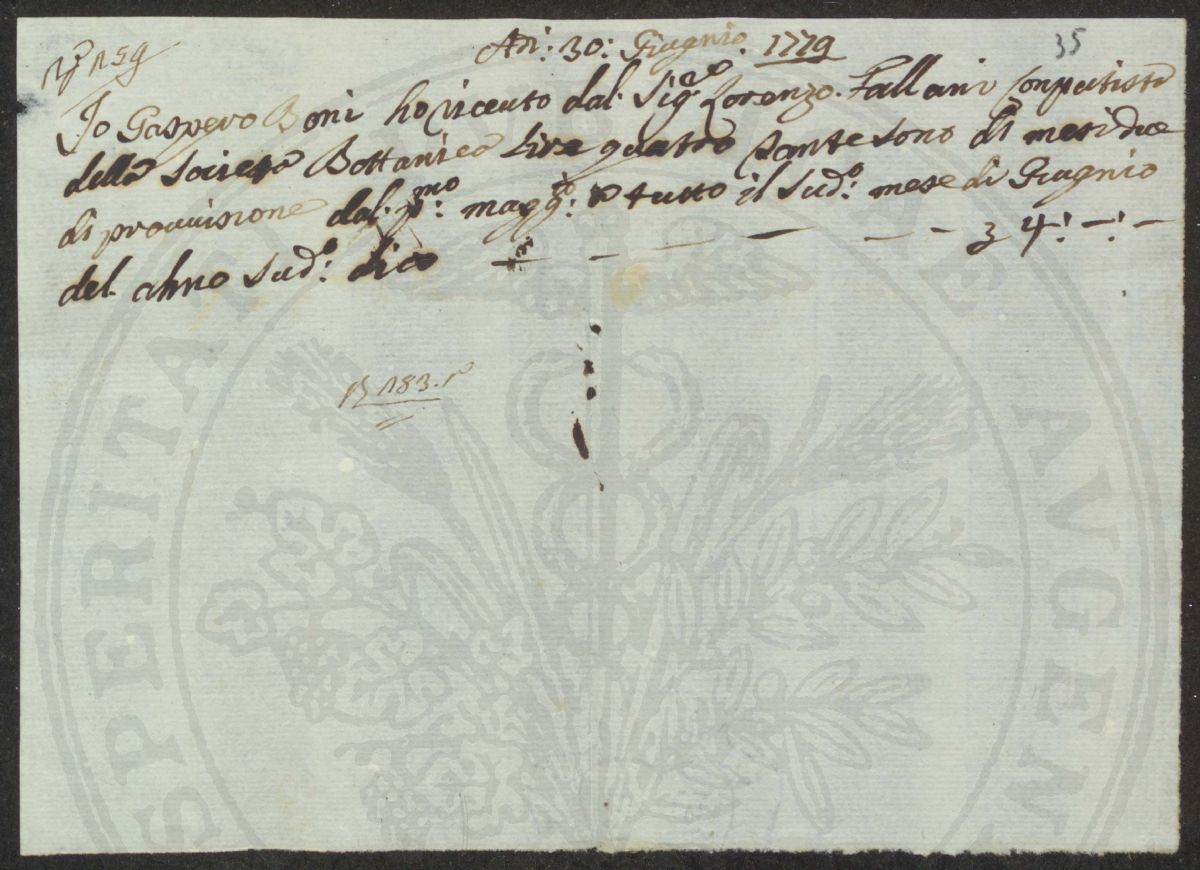 N.º 159
Adi: 30: Giugnio. 1779
35
Io Gaspero Boni ho riceuto dal. Sig.re Lorenzo. Fallani Conputista
della Società Bottanica Lire quatro e tante sono di mesi due
di prouuisione dal. p:mo magg:io a tutto il Sud:o mese di Giugnio
del. ahno Sud:o dico — — — — — — 4:—:—
183.
SPERITATI
AVGEN